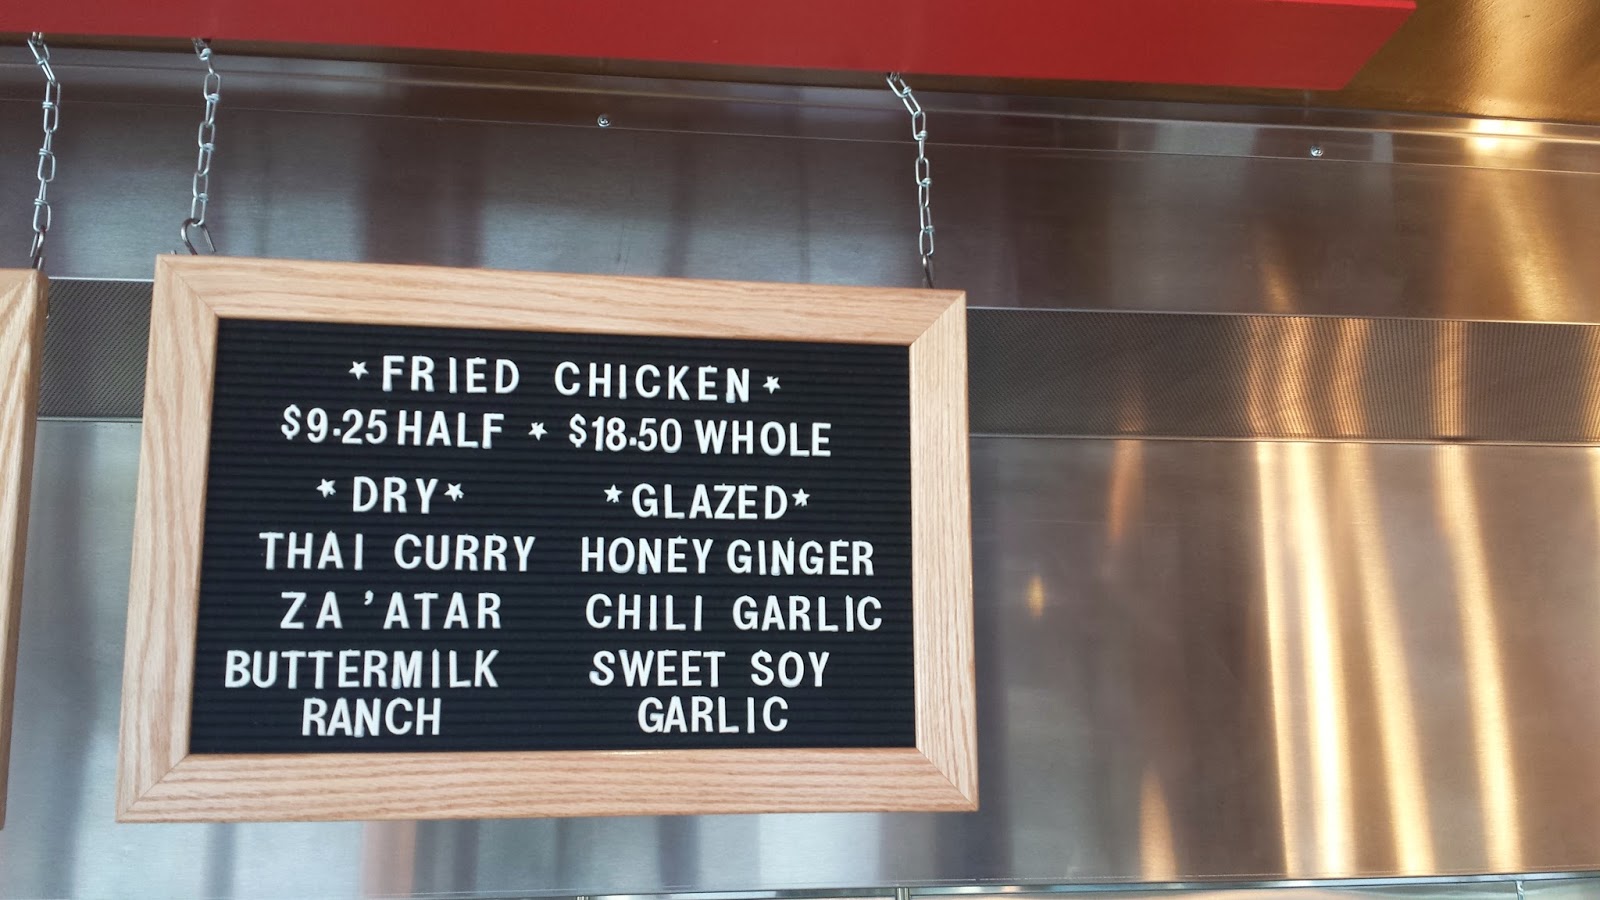 *FRIED CHICKEN*
$9.25 HALF * $18.50 WHOLE
*DRY*
THAI CURRY
ZA'ATAR
BUTTERMILK
RANCH
*GLAZED*
HONEY GINGER
CHILI GARLIC
SWEET SOY
GARLIC